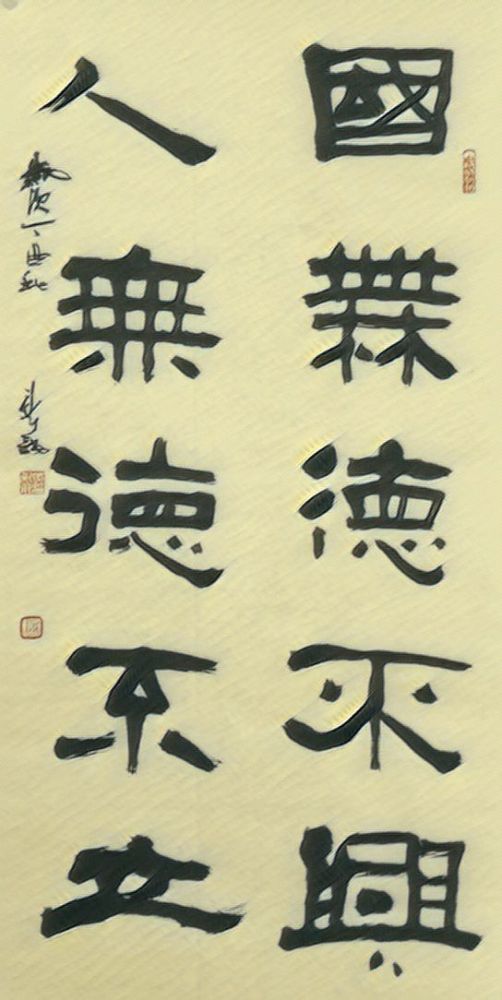 國無德不興
人無德不立